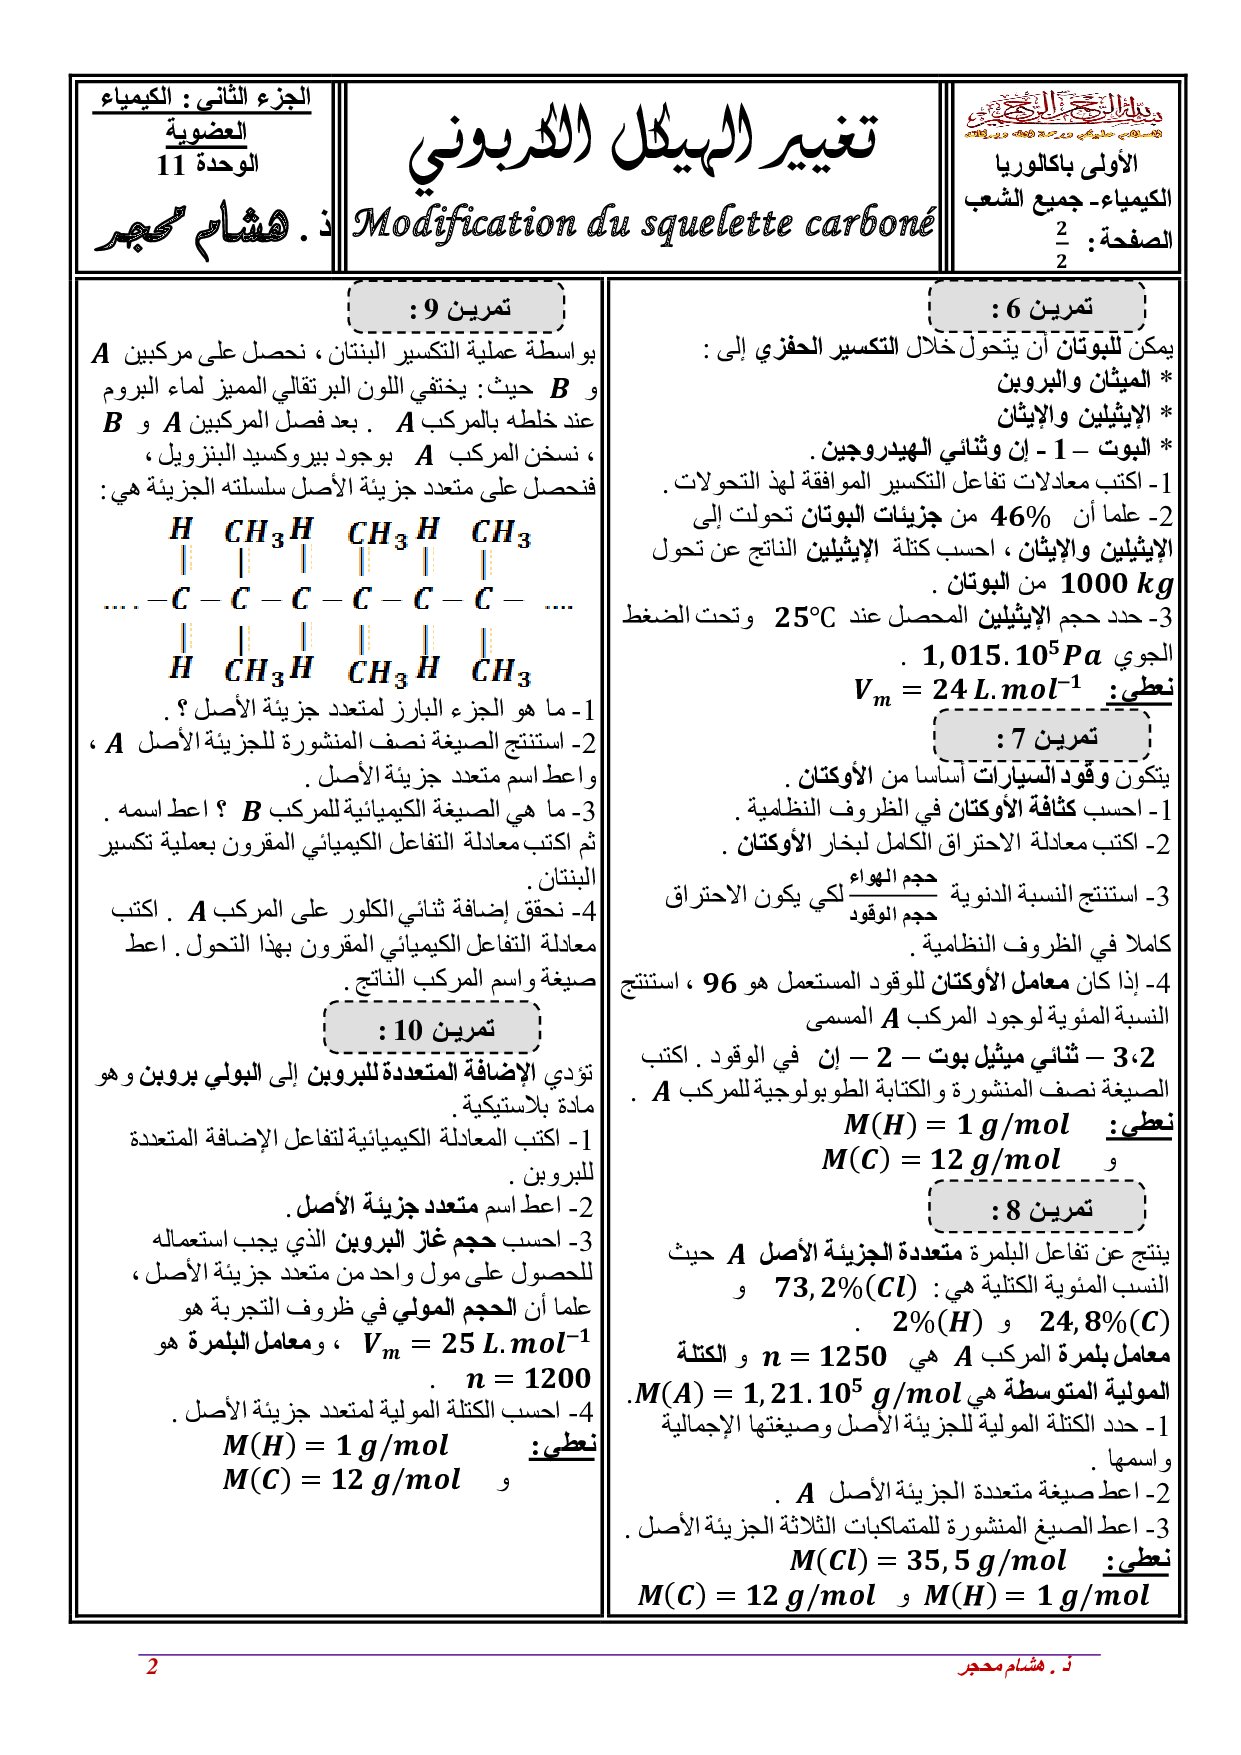 الأولى باكالوريا
الكيمياء- جميع الشعب
الصفحة : 2/2
تغيير الهيكل الكربوني
Modification du squelette carboné
الجزء الثاني : الكيمياء
العضوية
الوحدة 11
ذ . هشام محجر
تمرين 6 :
يمكن للبوتان أن يتحول خلال التكسير الحفزي إلى :
* الميثان والبروبن
* الإيثيلين والإيثان
* البوت – 1 - إن وثنائي الهيدروجين .
1- اكتب معادلات تفاعل التكسير الموافقة لهذ التحولات .
2- علما أن 46% من جزيئات البوتان تحولت إلى
الإيثيلين والإيثان ، احسب كتلة الإيثيلين الناتج عن تحول
1000 kg من البوتان .
3- حدد حجم الإيثيلين المحصل عند 25°C وتحت الضغط
الجوي 1,015.10⁵Pa .
نعطي : Vₘ = 24 L.mol⁻¹
تمرين 7 :
يتكون وقود السيارات أساسا من الأوكتان .
1- احسب كثافة الأوكتان في الظروف النظامية .
2- اكتب معادلة الاحتراق الكامل لبخار الأوكتان .
3- استنتج النسبة الدنوية حجم الهواء/حجم الوقود لكي يكون الاحتراق
كاملا في الظروف النظامية .
4- إذا كان معامل الأوكتان للوقود المستعمل هو 96 ، استنتج
النسبة المئوية لوجود المركب A المسمى
3،2 – ثنائي ميثيل بوت – 2 – إن في الوقود . اكتب
الصيغة نصف المنشورة والكتابة الطوبولوجية للمركب A .
نعطي : M(H) = 1 g/mol
و M(C) = 12 g/mol
تمرين 8 :
ينتج عن تفاعل البلمرة متعددة الجزيئة الأصل A حيث
النسب المئوية الكتلية هي : 73,2%(Cl) و
24,8%(C) و 2%(H) .
معامل بلمرة المركب A هي n = 1250 و الكتلة
المولية المتوسطة هي M(A) = 1,21.10⁵ g/mol.
1- حدد الكتلة المولية للجزيئة الأصل وصيغتها الإجمالية
واسمها .
2- اعط صيغة متعددة الجزيئة الأصل A .
3- اعط الصيغ المنشورة للمتماكبات الثلاثة الجزيئة الأصل .
نعطي : M(Cl) = 35,5 g/mol
M(H) = 1 g/mol و M(C) = 12 g/mol
تمرين 9 :
بواسطة عملية التكسير البنتان ، نحصل على مركبين A
و B حيث : يختفي اللون البرتقالي المميز لماء البروم
عند خلطه بالمركب A . بعد فصل المركبين A و B
، نسخن المركب A بوجود بيروكسيد البنزويل ،
فنحصل على متعدد جزيئة الأصل سلسلته الجزيئة هي :
H CH₃ H CH₃ H CH₃
.... – C – C – C – C – C – C – ....
H CH₃ H CH₃ H CH₃
1- ما هو الجزء البارز لمتعدد جزيئة الأصل ؟ .
2- استنتج الصيغة نصف المنشورة للجزيئة الأصل A ،
واعط اسم متعدد جزيئة الأصل .
3- ما هي الصيغة الكيميائية للمركب B ؟ اعط اسمه .
ثم اكتب معادلة التفاعل الكيميائي المقرون بعملية تكسير
البنتان .
4- نحقق إضافة ثنائي الكلور على المركب A . اكتب
معادلة التفاعل الكيميائي المقرون بهذا التحول . اعط
صيغة واسم المركب الناتج .
تمرين 10 :
تؤدي الإضافة المتعددة للبروبن إلى البولي بروبن وهو
مادة بلاستيكية .
1- اكتب المعادلة الكيميائية لتفاعل الإضافة المتعددة
للبروبن .
2- اعط اسم متعدد جزيئة الأصل .
3- احسب حجم غاز البروبن الذي يجب استعماله
للحصول على مول واحد من متعدد جزيئة الأصل ،
علما أن الحجم المولي في ظروف التجربة هو
Vₘ = 25 L.mol⁻¹ ، ومعامل البلمرة هو
n = 1200 .
4- احسب الكتلة المولية لمتعدد جزيئة الأصل .
نعطي : M(H) = 1 g/mol
و M(C) = 12 g/mol
ذ . هشام محجر
2